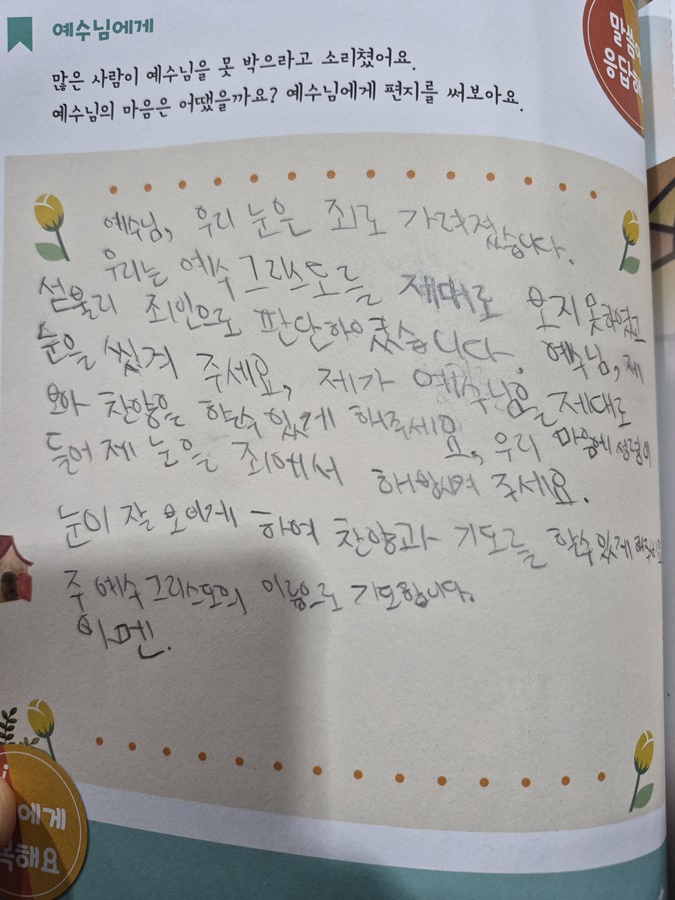 예수님에게
많은 사람이 예수님을 못 박으라고 소리쳤어요.
예수님의 마음은 어땠을까요? 예수님에게 편지를 써보아요.
말씀
응답
예수님, 우리 눈은 죄로 가려졌습니다.
우리는 예수그리스도를 제대로 보지못하였고
섣불리 죄인으로 판단하였습니다. 예수님, 제
눈을 씻겨 주세요, 제가 예수님을 제대로
보아 찬양을 할수있게 해주세요, 우리 마음에 성령이
들어 제 눈을 죄에서 해방시켜 주세요.
눈이 잘 보이게 하여 찬양과 기도를 할수있게
주 예수그리스도의 이름으로 기도합니다.
아멘.
에게
해요